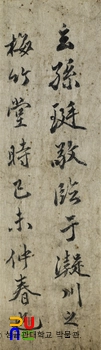 玄孫珽敬臨于凝川之
梅竹堂時己未仲春也
성균관대학교 박물관